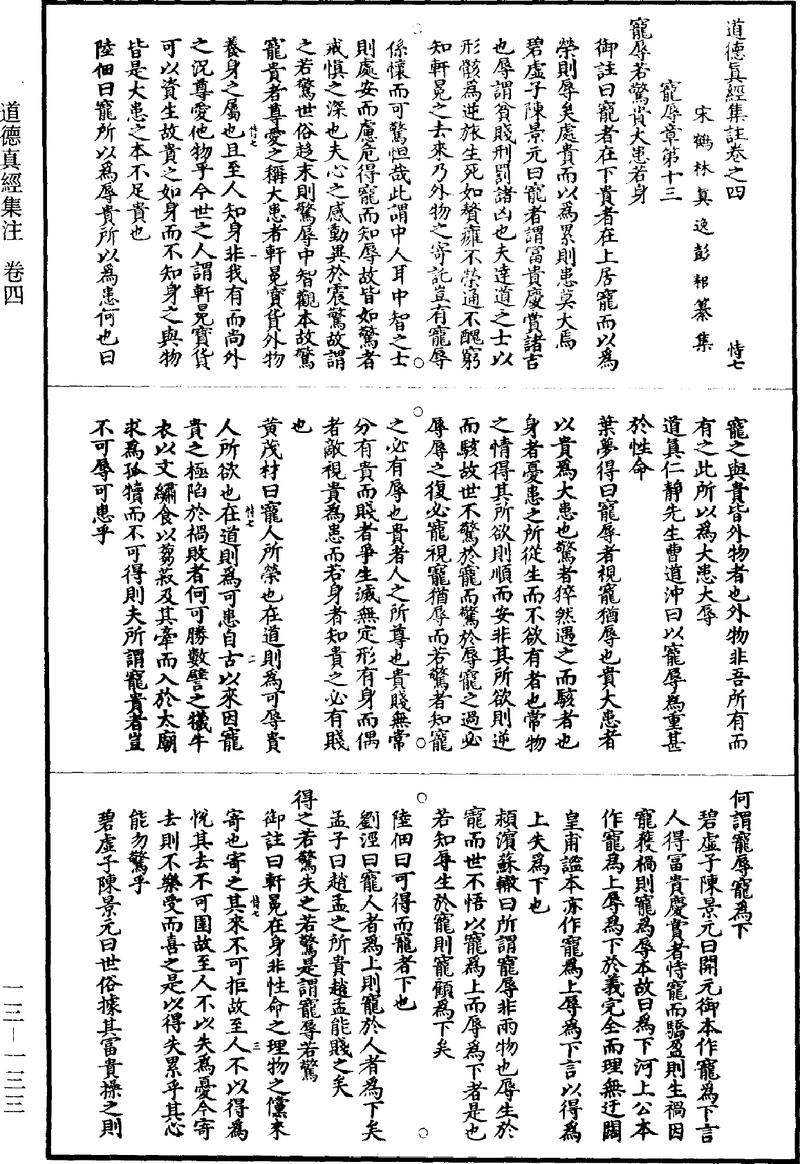 道德真經集註卷之四
恃七
宋鶴林真逸彭耜纂集
寵辱章第十三
寵辱若驚貴大患若身
御註曰寵者在下貴者在上居寵而以為
榮則辱矣處貴而以為累則患莫大焉
碧虛子陳景元曰寵者謂富貴慶賞諸吉
也辱謂貧賤刑罰諸凶也夫達道之士以
形骸為逆旅生死如贅癰不榮通不醜窮
知軒冕之去來乃外物之寄託豈有寵辱
係懷而可驚怛哉此謂中人耳中智之士
則處安而慮危得寵而知辱故皆如驚者
戒慎之深也夫心之感動異於震驚故謂
之若驚世俗趍末則驚辱中智觀本故驚
寵貴者尊愛之稱大患者軒冕寶貨外物
養身之屬也且至人知身非我有而尚外
之況尊愛他物乎今世之人謂軒冕寶貨
可以資生故貴之如身而不知身之與物
皆是大患之本不足貴也
陸佃曰寵所以為辱貴所以為患何也曰
寵之與貴皆外物者也外物非吾所有而
有之此所以為大患大辱
道真仁靜先生曹道沖曰以寵辱為重甚
於性命
葉夢得曰寵辱者視寵猶辱也貴大患者
以貴為大患也驚者猝然遇之而駭者也
身者憂患之所從生而不欲有者也常物
之情得其所欲則順而安非其所欲則逆
而駭故世不驚於寵而驚於辱寵之過必
辱辱之復必寵視寵猶辱而若驚者知寵
之必有辱也貴者人之所尊也貴賤無常
分有貴而賤者爭生滅無定形有身而偶
者敵視貴為患而若身者知貴之必有賤
也
黃茂材曰寵人所榮也在道則為可辱貴
人所欲也在道則為可患自古以來因寵
貴之極陷於禍敗者何可勝數譬之犧牛
衣以文繡食以芻菽及其牽而入於太廟
求為孤犢而不可得則夫所謂寵貴者豈
不可辱可患乎
何謂寵辱寵為下
碧虛子陳景元曰開元御本作寵為下言
人得富貴慶賞者恃寵而驕盈則生禍因
寵獲禍則寵為辱本故曰為下河上公本
作寵為上辱為下於義完全而理無迂闊
皇甫謐本亦作寵為上辱為下言以得為
上失為下也
潁濱蘇轍曰所謂寵辱非兩物也辱生於
寵而世不悟以寵為上而辱為下者是也
若知辱生於寵則寵顧為下矣
陸佃曰可得而寵者下也
劉涇曰寵人者為上則寵於人者為下矣
孟子曰趙孟之所貴趙孟能賤之矣
得之若驚失之若驚是謂寵辱若驚
御註曰軒冕在身非性命之理物之儻來
寄也寄之其來不可拒故至人不以得為
悅其去不可圉故至人不以失為憂今寄
去則不樂受而喜之是以得失累乎其心
能勿驚乎
碧虛子陳景元曰世俗據其富貴操之則
恃七
一
恃七
二
恃七
三
道德真經集注 卷四
一三—一三三